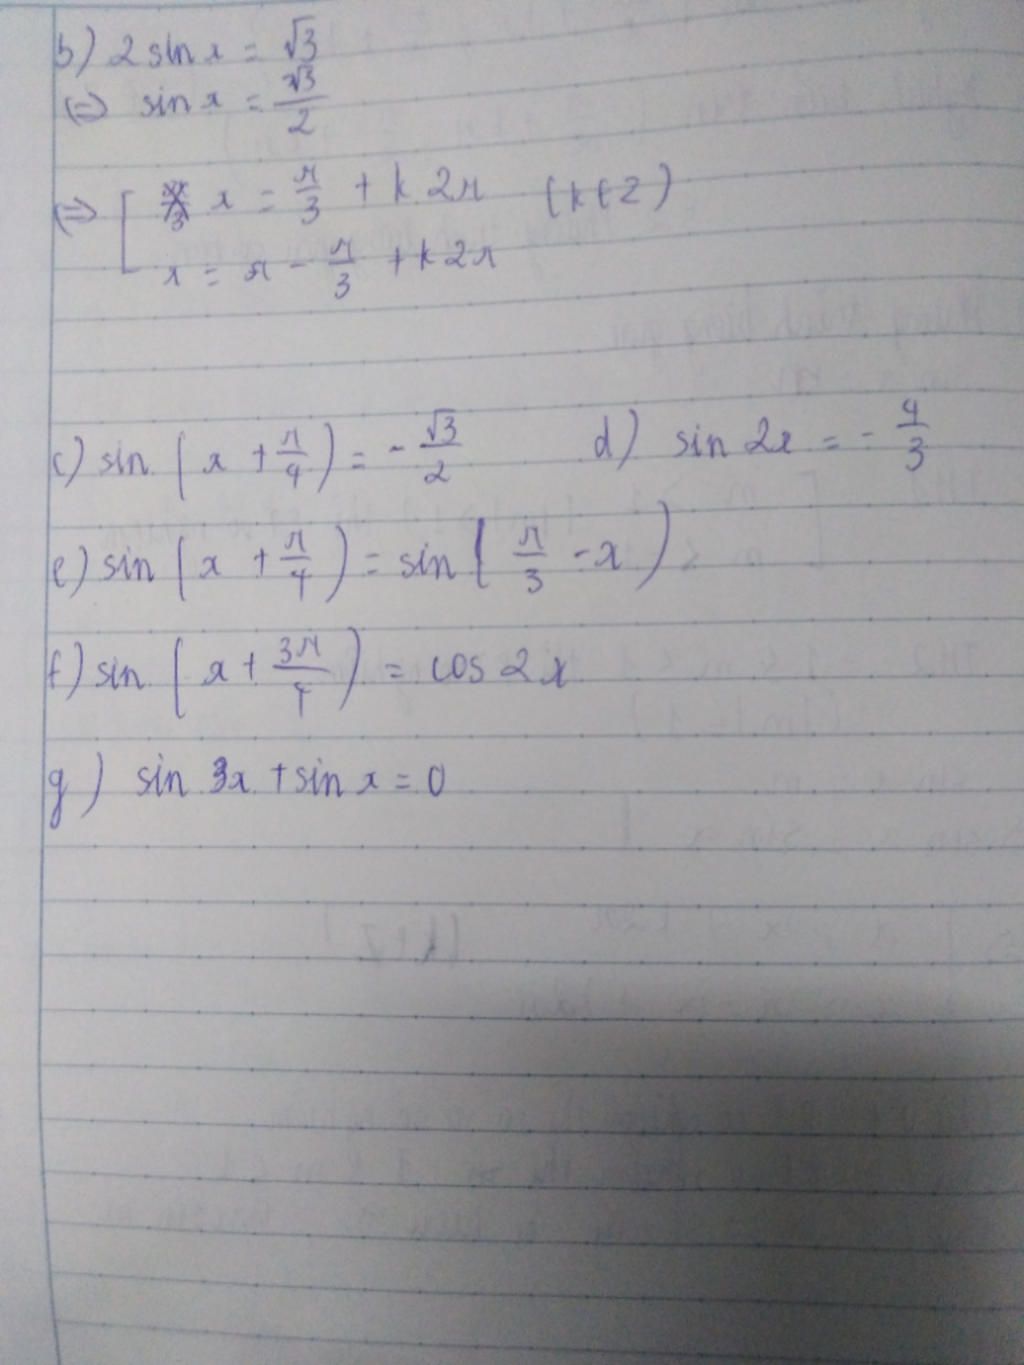 b) 2 sin x = √3
⇔ sin x = √3/2
⇔ [ x = π/3 + k2π (k∈Z)
x = π - π/3 + k2π
c) sin (x + π/4) = - √3/2 d) sin 2x = - 4/3
e) sin (x + π/4) = sin (π/3 - x)
f) sin (x + 3π/4) = cos 2x
g) sin 3x + sin x = 0